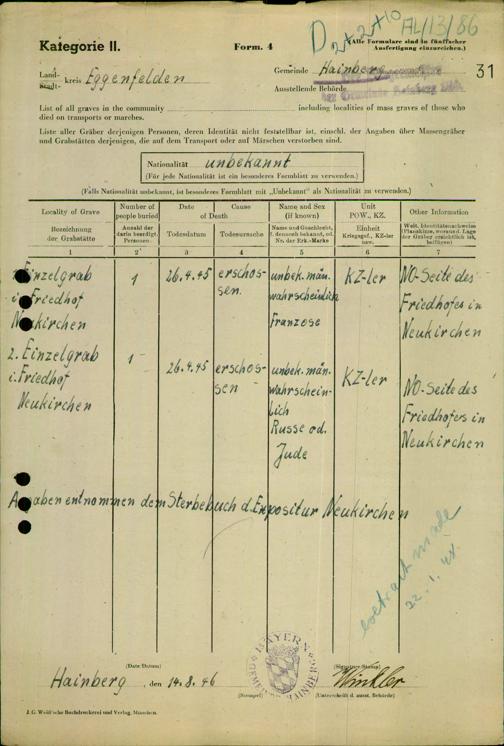 Kategorie II.
Form. 4
D 2+2+10
AL/13/86
(Alle Formulare sind in fünffacher
Ausfertigung einzureichen.)
31
Land-
Stadt-
kreis Eggenfelden
Gemeinde Hainberg
Ausstellende Behörde
List of all graves in the community including localities of mass graves of those who
died on transports or marches.
Liste aller Gräber derjenigen Personen, deren Identität nicht feststellbar ist, einschl. der Angaben über Massengräber
und Grabstätten derjenigen, die auf dem Transport oder auf Märschen verstorben sind.
Nationalität unbekannt
(Für jede Nationalität ist ein besonderes Formblatt zu verwenden.)
(Falls Nationalität unbekannt, ist besonderes Formblatt mit „Unbekannt“ als Nationalität zu verwenden.)
Locality of Grave
Number of
people buried
Date
Cause
of Death
Name and Sex
(if known)
Unit
POW., KZ.
Other Information
Bezeichnung
der Grabstätte
Anzahl der
darin beerdigt.
Personen.
Todesdatum
Todesursache
Name und Geschlecht,
f. dennoch bekannt, od.
Nr. der Erk.-Marke
Einheit
Kriegsgef., KZ-ler
usw.
Weit. Identitätsnachweise
(Planskizze, worauf d. Lage
der Gräber ersichtlich ist,
beifügen)
1 2 3 4 5 6 7
Einzelgrab 1 26.4.45 erschos- unbek. män. KZ-ler NO-Seite des
i. Friedhof sen. wahrscheinlich Friedhofes in
Neukirchen Franzose Neukirchen
2. Einzelgrab 1 26.4.45 erschos- unbek. män. KZ-ler NO-Seite des
i. Friedhof sen wahrschein- Friedhofes in
Neukirchen lich Neukirchen
Russe od.
Jude
Angaben entnommen dem Sterbebuch d. Expositur Neukirchen
extract made
22.1.48.
(Date/Datum)
Hainberg, den 14.8.46
BAYERN
GEMEINDE HAINBERG
(Stempel)
Winkler
(Unterschrift d. ausst. Behörde)
J. G. Weiß'sche Buchdruckerei und Verlag, München.